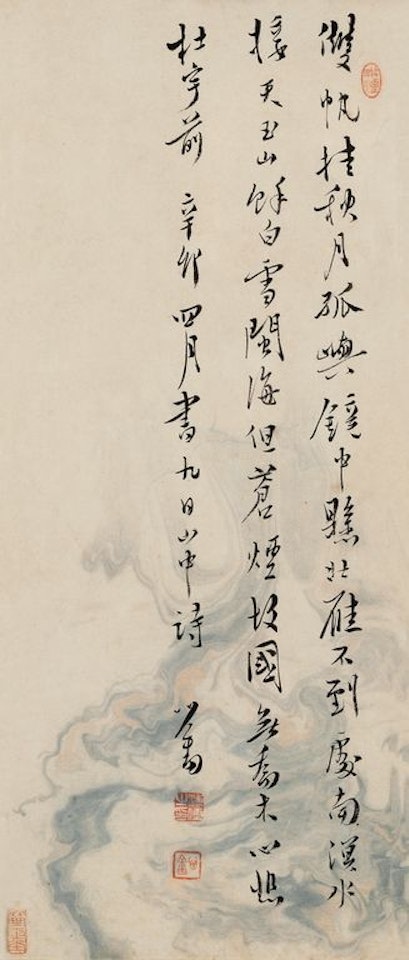 雙帆挂秋月孤嶼鏡中懸北雁不到處南溟水
接天玉山餘白雪閩海但蒼煙故國無喬木心悲
杜宇前 辛卯四月書九日山中詩 心畬